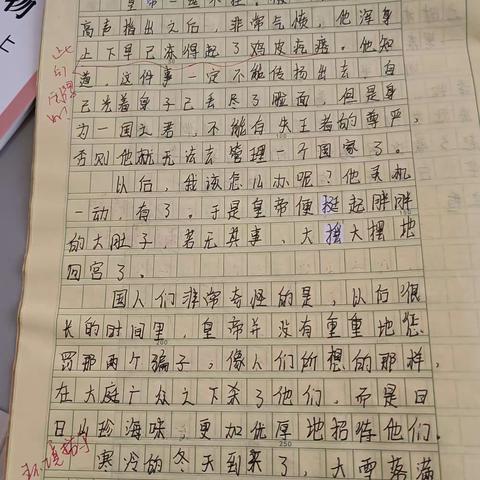 皇帝一丝不挂。
高声指出之后，非常气愤，他浑身
上下早已冻得起了鸡皮疙瘩。他知
道，这件事一定不能传扬出去，自
己光着身子已丢尽了脸面，但是身
为一国之君，不能自失王者的尊严，
否则他就无法去管理一个国家了。
以后，我该怎么办呢？他灵机
一动，有了。于是皇帝便挺起胖胖
的大肚子，若无其事、大摇大摆地
回宫了。
国人们非常奇怪的是，以后很
长的时间里，皇帝并没有重重地惩
200
罚那两个骗子，像人们所想的那样，
在大庭广众之下杀了他们，而是日
日山珍海味，更加优厚地招待他们。
250
寒冷的冬天到来了，大雪落满
此句